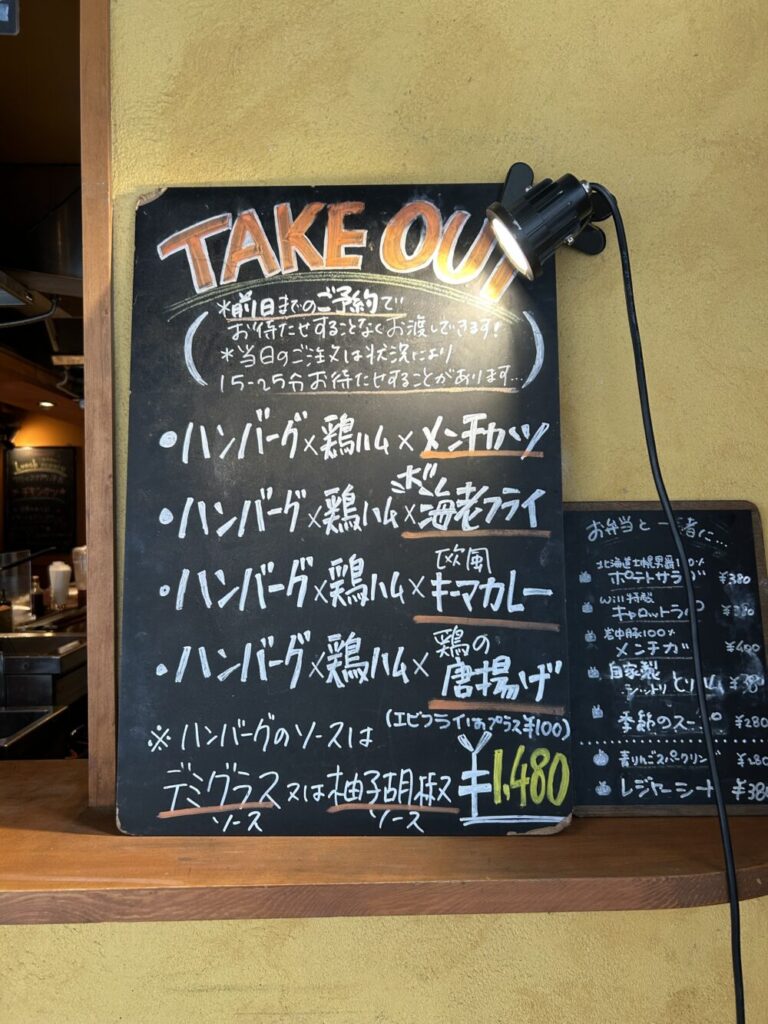 TAKE OUT
*前日までのご予約で
お待たせすることなくお渡しできます!
*当日のご注文は状況により
15-25分お待たせすることがあります…
•ハンバーグ×鶏ハム×メンチカツ
•ハンバーグ×鶏ハム×海老フライ
•ハンバーグ×鶏ハム×欧風キーマカレー
•ハンバーグ×鶏ハム×鶏の唐揚げ
(エビフライはプラス¥100)
※ハンバーグのソースは
デミグラスソース又は柚子胡椒ソース ¥1,480
お弁当と一緒に…
ポテトサラダ ¥380
Will特製
キャロットラペ
¥400
自家製
季節のスープ ¥280
青りんごスパークリング
レジャーシート ¥380
Lunch